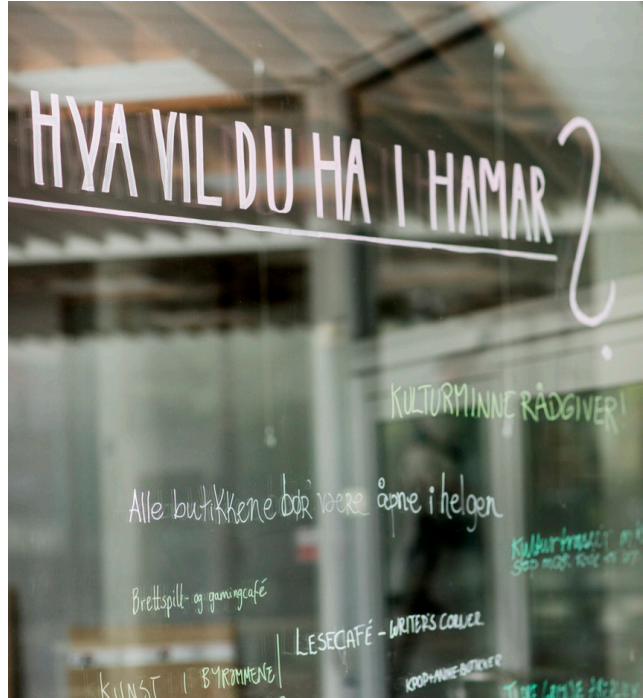 HVA VIL DU HA I HAMAR?
KULTURMINNERÅDGIVER!
Alle butikkene bør være åpne i helgen
Brettspill- og gamingcafé
LESECAFÉ - WRITER'S CORNER
KUNST I BYROMMENE
KPOP+ANIME-BUTIKKER